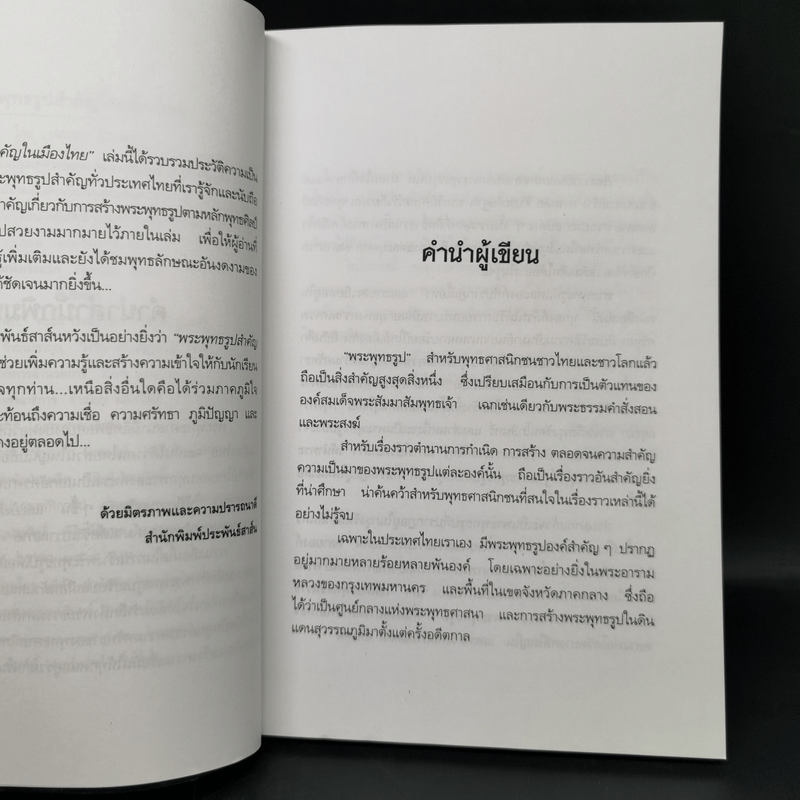 คัญในเมืองไทย" เล่มนี้ได้รวบรวมประวัติความเป็น
ะพุทธรูปสำคัญทั่วประเทศไทยที่เรารู้จักและนับถือ
ำคัญเกี่ยวกับการสร้างพระพุทธรูปตามหลักพุทธศิลป์
ปสวยงามมากมายไว้ภายในเล่ม เพื่อให้ผู้อ่านที่
รู้เพิ่มเติมและยังได้ชมพุทธลักษณะอันงดงามของ
ด้ชัดเจนมากยิ่งขึ้น...
พันธ์สาส์นหวังเป็นอย่างยิ่งว่า "พระพุทธรูปสำคัญ
ช่วยเพิ่มความรู้และสร้างความเข้าใจให้กับนักเรียน
จทุกท่าน...เหนือสิ่งอื่นใดคือได้ร่วมภาคภูมิใจ
ะท้อนถึงความเชื่อ ความศรัทธา ภูมิปัญญา และ
คงอยู่ตลอดไป...
ด้วยมิตรภาพและความปรารถนาดี
สำนักพิมพ์ประพันธ์สาส์น
คำนำผู้เขียน
"พระพุทธรูป" สำหรับพุทธศาสนิกชนชาวไทยและชาวโลกแล้ว
ถือเป็นสิ่งสำคัญสูงสุดสิ่งหนึ่ง ซึ่งเปรียบเสมือนกับการเป็นตัวแทนของ
องค์สมเด็จพระสัมมาสัมพุทธเจ้า เฉกเช่นเดียวกับพระธรรมคำสั่งสอน
และพระสงฆ์
สำหรับเรื่องราวตำนานการกำเนิด การสร้าง ตลอดจนความสำคัญ
ความเป็นมาของพระพุทธรูปแต่ละองค์นั้น ถือเป็นเรื่องราวอันสำคัญยิ่ง
ที่น่าศึกษา น่าค้นคว้าสำหรับพุทธศาสนิกชนที่สนใจในเรื่องราวเหล่านี้ได้
อย่างไม่รู้จบ
เฉพาะในประเทศไทยเราเอง มีพระพุทธรูปองค์สำคัญ ๆ ปรากฏ
อยู่มากมายหลายร้อยหลายพันองค์ โดยเฉพาะอย่างยิ่งในพระอาราม
หลวงของกรุงเทพมหานคร และพื้นที่ในเขตจังหวัดภาคกลาง ซึ่งถือ
ได้ว่าเป็นศูนย์กลางแห่งพระพุทธศาสนา และการสร้างพระพุทธรูปในดิน
แดนสุวรรณภูมิมาตั้งแต่ครั้งอดีตกาล